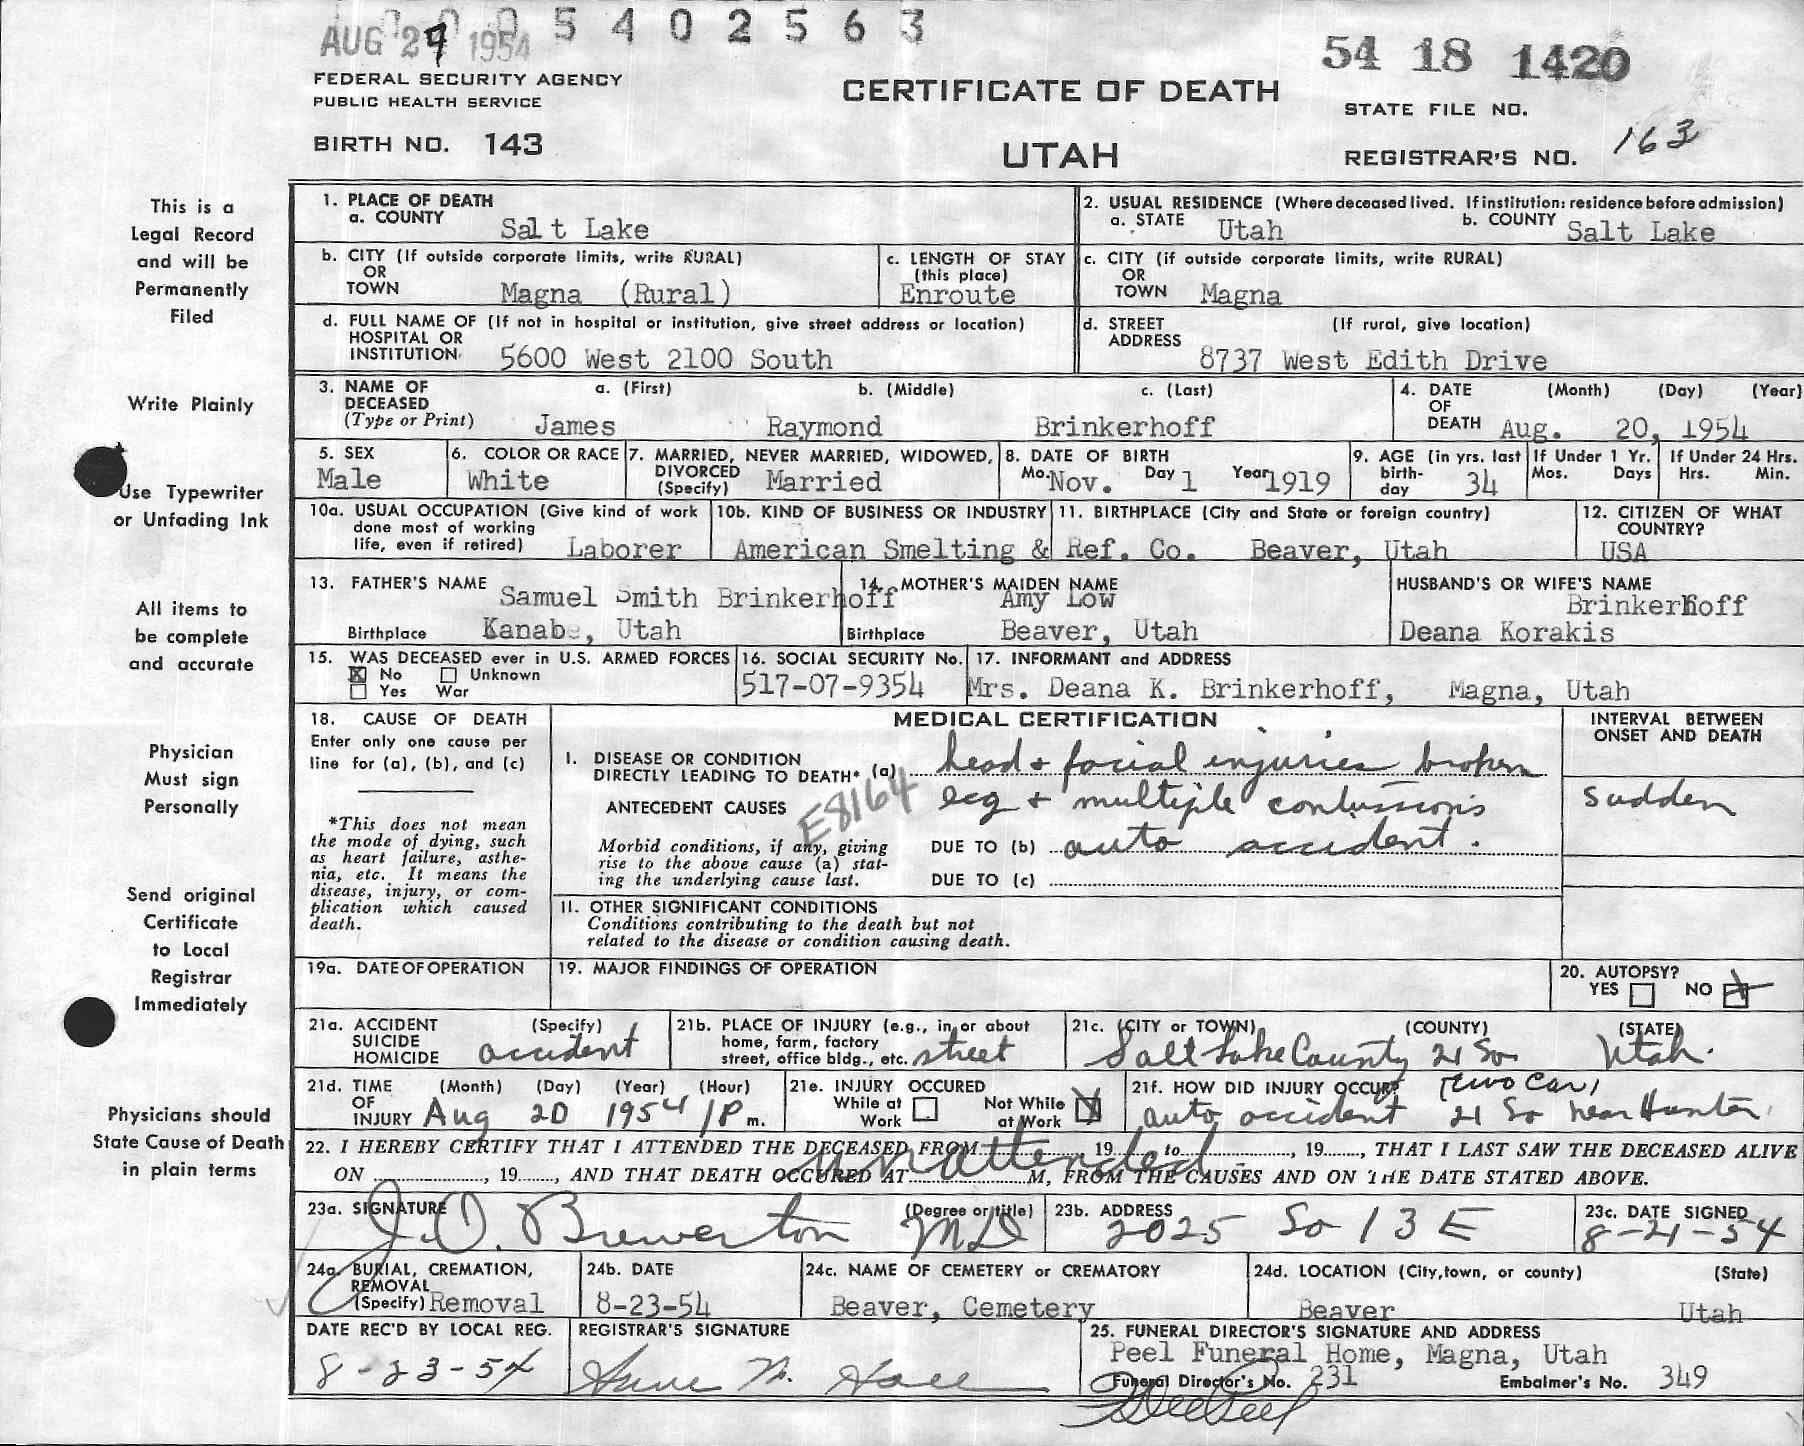 0 0 0 5 4 0 2 5 6 3
AUG 27 1954
54 18 1420
FEDERAL SECURITY AGENCY
PUBLIC HEALTH SERVICE
CERTIFICATE OF DEATH
STATE FILE NO.
BIRTH NO. 143
UTAH
REGISTRAR'S NO. 163
This is a
Legal Record
and will be
Permanently
Filed
Write Plainly
Use Typewriter
or Unfading Ink
All items to
be complete
and accurate
Physician
Must sign
Personally
Send original
Certificate
to Local
Registrar
Immediately
Physicians should
State Cause of Death
in plain terms
1. PLACE OF DEATH
a. COUNTY Salt Lake
2. USUAL RESIDENCE (Where deceased lived. If institution: residence before admission)
a. STATE Utah b. COUNTY Salt Lake
b. CITY (If outside corporate limits, write RURAL)
OR
TOWN Magna (Rural)
c. LENGTH OF STAY
(this place)
Enroute
c. CITY (if outside corporate limits, write RURAL)
OR
TOWN Magna
d. FULL NAME OF (If not in hospital or institution, give street address or location)
HOSPITAL OR
INSTITUTION 5600 West 2100 South
d. STREET (If rural, give location)
ADDRESS
8737 West Edith Drive
3. NAME OF a. (First) b. (Middle) c. (Last)
DECEASED
(Type or Print) James Raymond Brinkerhoff
4. DATE (Month) (Day) (Year)
OF
DEATH Aug. 20, 1954
5. SEX
Male
6. COLOR OR RACE
White
7. MARRIED, NEVER MARRIED, WIDOWED,
DIVORCED
(Specify) Married
8. DATE OF BIRTH
Mo. Nov. Day 1 Year 1919
9. AGE (in yrs. last
birth-
day 34
If Under 1 Yr.
Mos. Days
If Under 24 Hrs.
Hrs. Min.
10a. USUAL OCCUPATION (Give kind of work
done most of working
life, even if retired) Laborer
10b. KIND OF BUSINESS OR INDUSTRY
American Smelting & Ref. Co.
11. BIRTHPLACE (City and State or foreign country)
Beaver, Utah
12. CITIZEN OF WHAT
COUNTRY?
USA
13. FATHER'S NAME Samuel Smith Brinkerhoff
Birthplace Kanab, Utah
14. MOTHER'S MAIDEN NAME
Amy Low
Birthplace Beaver, Utah
HUSBAND'S OR WIFE'S NAME
Brinkerhoff
Deana Korakis
15. WAS DECEASED ever in U.S. ARMED FORCES
X No Unknown
Yes War
16. SOCIAL SECURITY No.
517-07-9354
17. INFORMANT and ADDRESS
Mrs. Deana K. Brinkerhoff, Magna, Utah
18. CAUSE OF DEATH
Enter only one cause per
line for (a), (b), and (c)
*This does not mean
the mode of dying, such
as heart failure, asthe-
nia, etc. It means the
disease, injury, or com-
plication which caused
death.
MEDICAL CERTIFICATION
I. DISEASE OR CONDITION
DIRECTLY LEADING TO DEATH* (a) head + facial injuries broken
ANTECEDENT CAUSES leg + multiple contussions
E8164
Morbid conditions, if any, giving
rise to the above cause (a) stat-
ing the underlying cause last.
DUE TO (b) auto accident.
DUE TO (c)
INTERVAL BETWEEN
ONSET AND DEATH
sudden
II. OTHER SIGNIFICANT CONDITIONS
Conditions contributing to the death but not
related to the disease or condition causing death.
19a. DATE OF OPERATION
19. MAJOR FINDINGS OF OPERATION
20. AUTOPSY?
YES NO X
21a. ACCIDENT (Specify)
SUICIDE
HOMICIDE accident
21b. PLACE OF INJURY (e.g., in or about
home, farm, factory
street, office bldg., etc. street
21c. (CITY or TOWN) (COUNTY) (STATE)
Salt Lake County 21 So Utah.
21d. TIME (Month) (Day) (Year) (Hour)
OF
INJURY Aug 20 1954 1 P m.
21e. INJURY OCCURED
While at Work
Not While at Work X
21f. HOW DID INJURY OCCUR? (two car)
auto accident 21 So near Hunter
22. I HEREBY CERTIFY THAT I ATTENDED THE DECEASED FROM unattended 19 to , 19 , THAT I LAST SAW THE DECEASED ALIVE
ON , 19 , AND THAT DEATH OCCURED AT M, FROM THE CAUSES AND ON THE DATE STATED ABOVE.
23a. SIGNATURE (Degree or title)
J. O. Brewerton MD
23b. ADDRESS
2025 So 13 E
23c. DATE SIGNED
8-21-54
24a. BURIAL, CREMATION,
REMOVAL
(Specify) Removal
24b. DATE
8-23-54
24c. NAME OF CEMETERY or CREMATORY
Beaver, Cemetery
24d. LOCATION (City, town, or county) (State)
Beaver Utah
DATE REC'D BY LOCAL REG.
8-23-54
REGISTRAR'S SIGNATURE
25. FUNERAL DIRECTOR'S SIGNATURE AND ADDRESS
Peel Funeral Home, Magna, Utah
Funeral Director's No. 231 Embalmer's No. 349